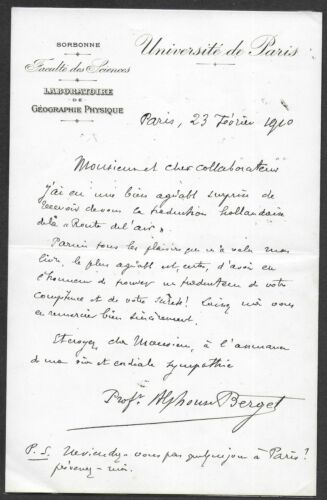 SORBONNE
Faculté des Sciences
LABORATOIRE
DE
GÉOGRAPHIE PHYSIQUE
Université de Paris
Paris, 23 Février 1910
Monsieur et cher collaborateur
J'ai eu une bien agréable surprise de
recevoir de vous la traduction hollandaise
de la « Route de l'air ».
Parmi tous les plaisirs que m'a valu mon
livre, le plus agréable est, certes, d'avoir eu
l'honneur de trouver un traducteur de votre
compétence et de votre
remercier bien sincèrement.
Et croyez, cher Monsieur, à l'assurance
de ma vive et cordiale sympathie
Profr Alphonse Berget
P.S. Ne viendrez-vous pas quelque jour à Paris?
prévenez-moi.